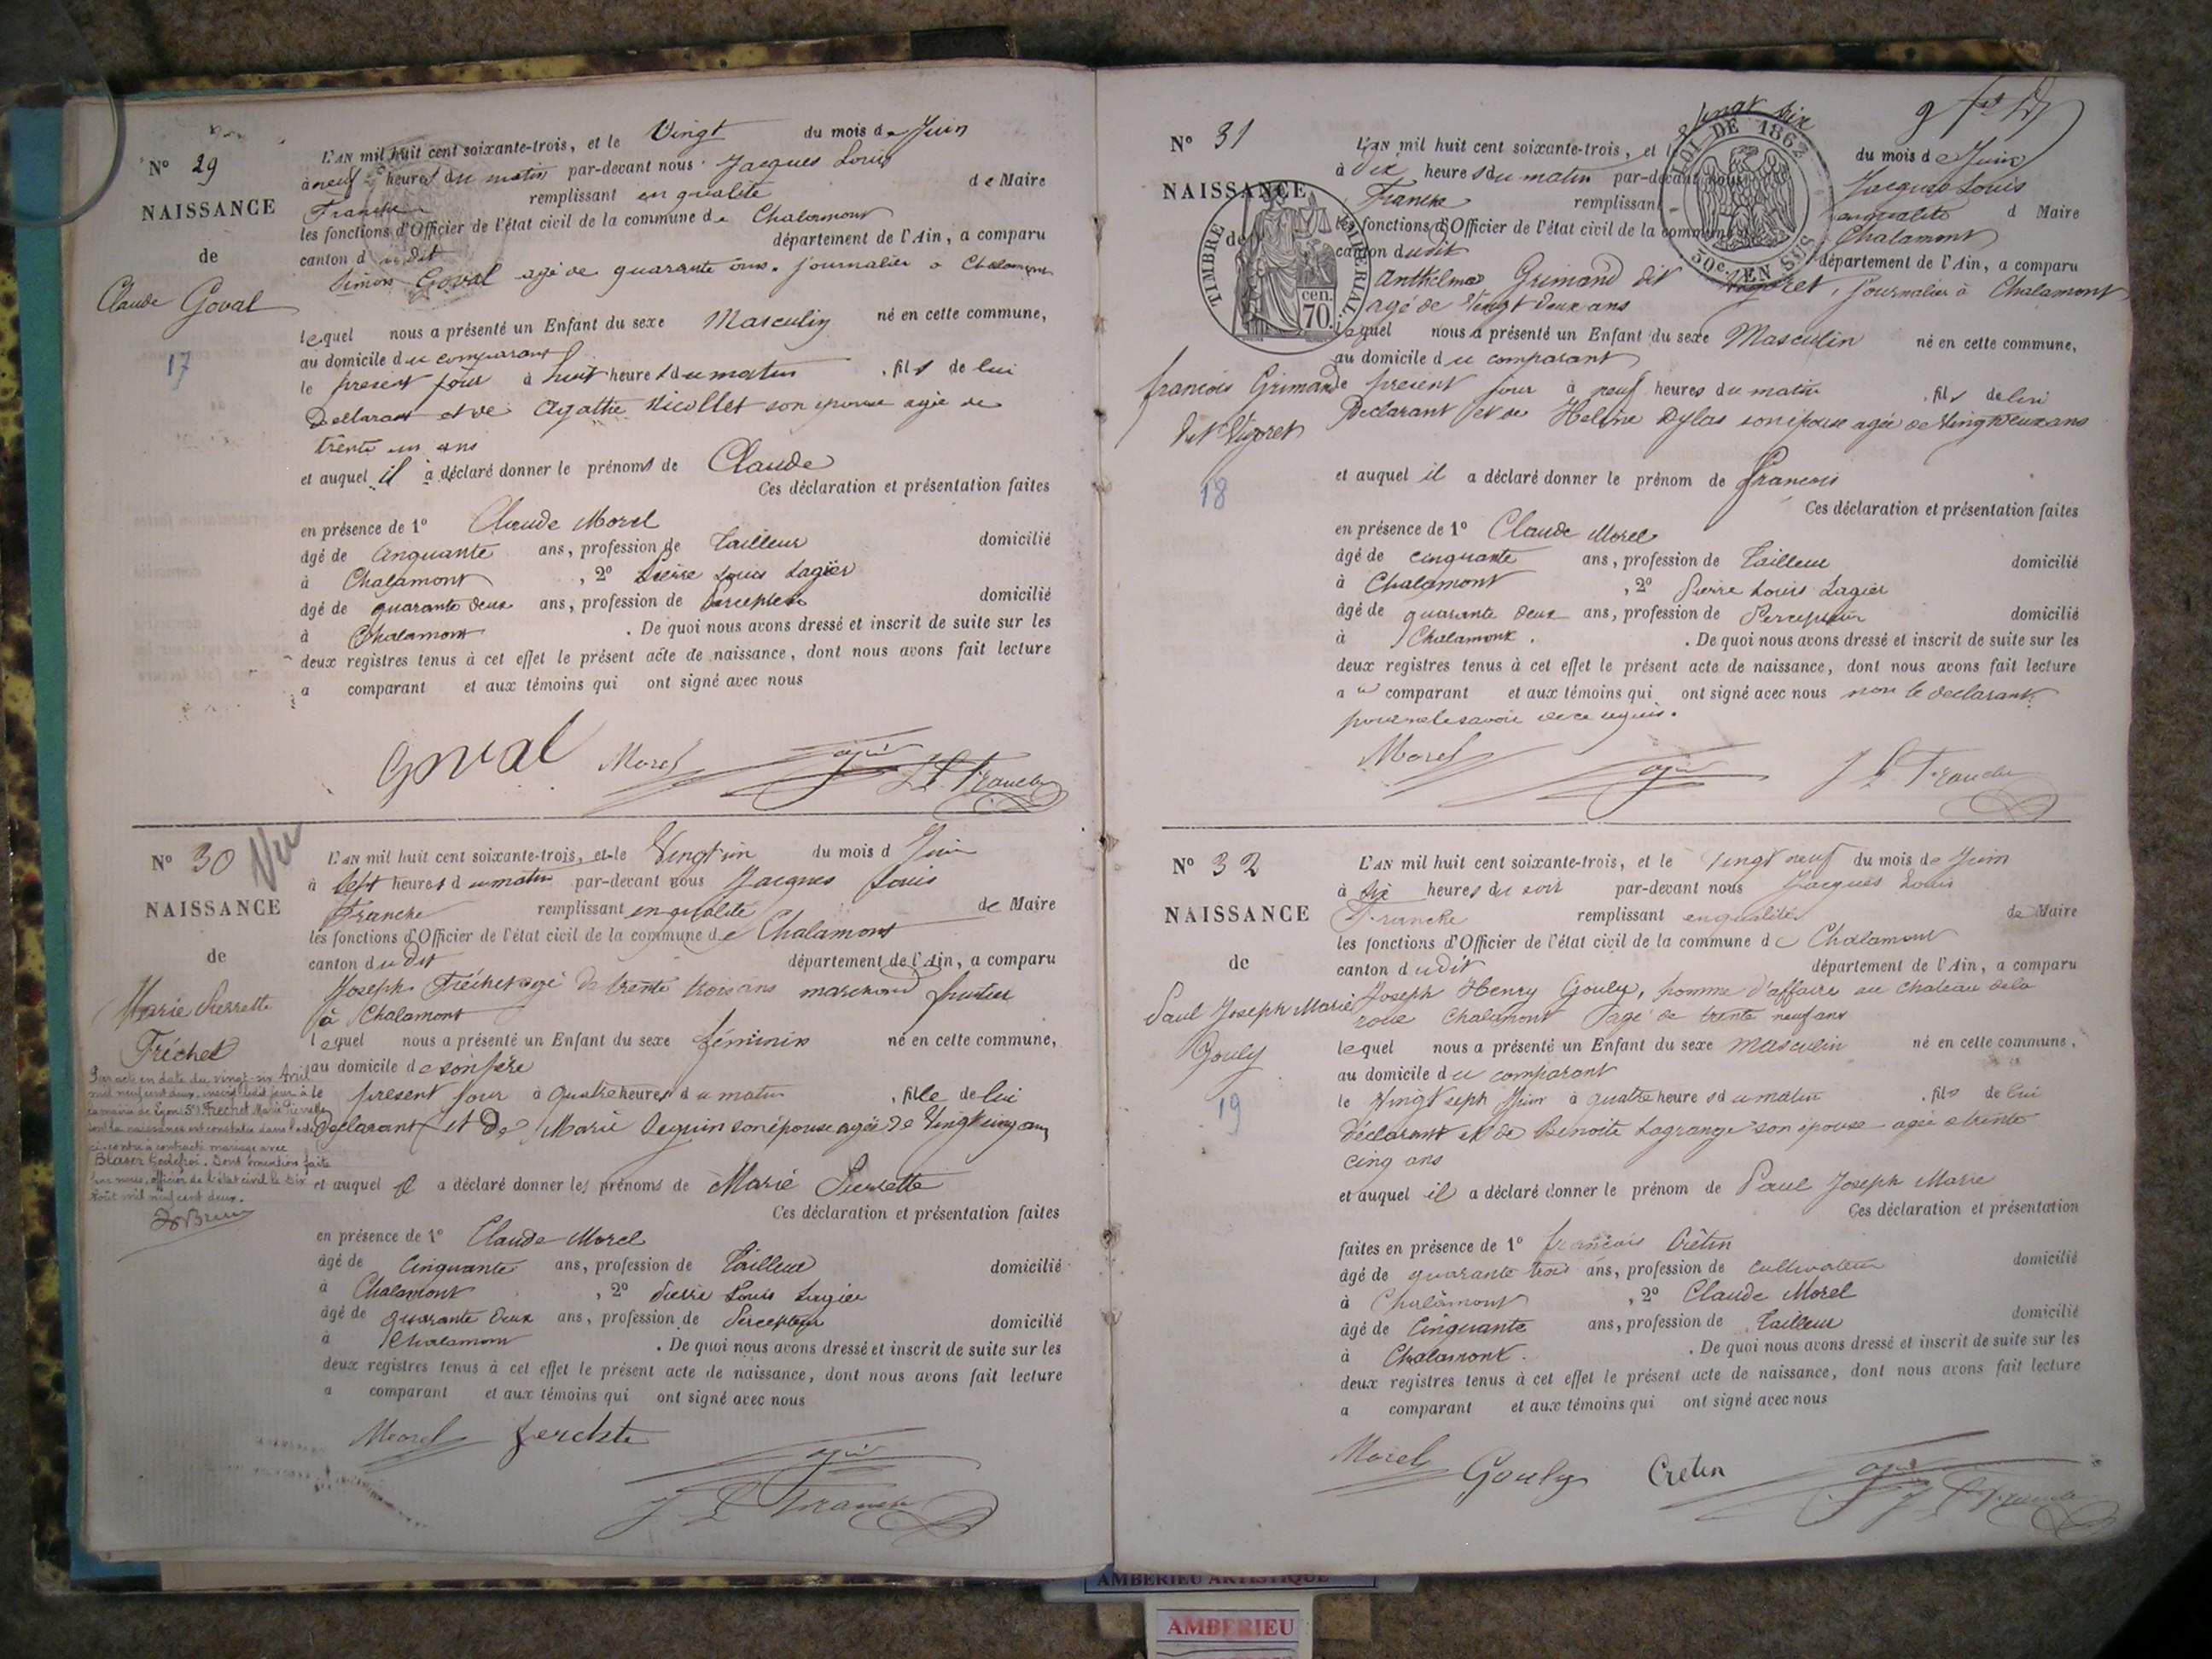 N° 29
NAISSANCE
de
Claude Goval
17
L'AN mil huit cent soixante-trois, et le Vingt du mois de Juin
à neuf heures du matin par-devant nous Jacques Louis
Franche remplissant en qualité de Maire
les fonctions d'Officier de l'état civil de la commune de Chalamont
canton dudit département de l'Ain, a comparu
Simon Goval agé de quarante ans. journalier a Chalamont
lequel nous a présenté un Enfant du sexe Masculin né en cette commune,
au domicile du comparant
le present jour à huit heures du matin , fils de lui
Declarant et de Agathe Nicollet son epouse agée de
trente un ans
et auquel il a déclaré donner le prénoms de Claude
Ces déclaration et présentation faites
en présence de 1° Claude Morel
âgé de Cinquante ans, profession de Tailleur domicilié
à Chalamont , 2° Pierre Louis Lagier
âgé de quarante deux ans, profession de Percepteur domicilié
à Chalamont . De quoi nous avons dressé et inscrit de suite sur les
deux registres tenus à cet effet le présent acte de naissance, dont nous avons fait lecture
a comparant et aux témoins qui ont signé avec nous
Goval Morel J L Franche
N° 30 Vu
NAISSANCE
de
Marie Pierrette
Fréchet
Par acte en date du vingt-six Avril
mil neuf cent deux, inscrit ledit jour à la
mairie de Lyon Fréchet Marie Pierrette
dont la naissance est constatée dans l'acte
ci-contre a contracté mariage avec
Blaser Godefroi. Dont mention faite
par nous, officier de l'état civil le six
Août mil neuf cent deux.
L'AN mil huit cent soixante-trois, et le Vingt un du mois d Juin
à Sept heures du matin par-devant nous Jacques Louis
Franche remplissant en qualité de Maire
les fonctions d'Officier de l'état civil de la commune de Chalamont
canton dudit département de l'Ain, a comparu
Joseph Fréchet agé de trente trois ans marchand fruitier
à Chalamont
lequel nous a présenté un Enfant du sexe féminin né en cette commune,
au domicile de son père
le present jour à quatre heures du matin , fille de lui
Declarant et de Marie Seguin son épouse agée de Vingt cinq ans
et auquel il a déclaré donner les prénoms de Marie Pierrette
Ces déclaration et présentation faites
en présence de 1° Claude Morel
âgé de Cinquante ans, profession de Tailleur domicilié
à Chalamont , 2° Pierre Louis Lagier
âgé de quarante deux ans, profession de Percepteur domicilié
à Chalamont . De quoi nous avons dressé et inscrit de suite sur les
deux registres tenus à cet effet le présent acte de naissance, dont nous avons fait lecture
a comparant et aux témoins qui ont signé avec nous
Morel
J L Franche
N° 31
NAISSANCE
de
francois Grimand
dit Vigoret
18
TIMBRE IMPERIAL
cen.
70.
LOI DE 1862
50c EN SUS
L'AN mil huit cent soixante-trois, et le Vingt six du mois de Juin
à Dix heures du matin par-devant nous Jacques Louis
Franche remplissant en qualité d Maire
les fonctions d'Officier de l'état civil de la commune Chalamont
canton dudit département de l'Ain, a comparu
Anthelme Grimand dit Vigoret, journalier à Chalamont
agé de Vingt deux ans
lequel nous a présenté un Enfant du sexe Masculin né en cette commune,
au domicile du comparant
le present jour à neuf heures du matin , fils de lui
Declarant et de Heline Dylas son épouse agée de Vingt deux ans
et auquel il a déclaré donner le prénom de francois
Ces déclaration et présentation faites
en présence de 1° Claude Morel
âgé de cinquante ans, profession de Tailleur domicilié
à Chalamont , 2° Pierre Louis Lagier
âgé de quarante deux ans, profession de Percepteur domicilié
à Chalamont . . De quoi nous avons dressé et inscrit de suite sur les
deux registres tenus à cet effet le présent acte de naissance, dont nous avons fait lecture
au comparant et aux témoins qui ont signé avec nous non le declarant
pour ne le savoir de ce requis.
Morel J L Franche
N° 32
NAISSANCE
de
Paul Joseph Marie
Gouly
19
L'AN mil huit cent soixante-trois, et le Vingt neuf du mois de Juin
à six heures du soir par-devant nous Jacques Louis
Franche remplissant en qualité de Maire
les fonctions d'Officier de l'état civil de la commune de Chalamont
canton dudit département de l'Ain, a comparu
Joseph Henry Gouly, homme d'affaire au chateau dela
roue Chalamont agé de trente neuf ans
lequel nous a présenté un Enfant du sexe masculin né en cette commune,
au domicile du comparant
le Vingt sept Juin à quatre heures du matin , fils de lui
déclarant et de Benoite Lagrange son épouse agée trente
cinq ans
et auquel il a déclaré donner le prénom de Paul Joseph Marie
Ces déclaration et présentation
faites en présence de 1° francois Crétin
âgé de quarante trois ans, profession de cultivateur domicilié
à Chalamont , 2° Claude Morel
âgé de Cinquante ans, profession de Tailleur domicilié
à Chalamont . . De quoi nous avons dressé et inscrit de suite sur les
deux registres tenus à cet effet le présent acte de naissance, dont nous avons fait lecture
a comparant et aux témoins qui ont signé avec nous
Morel Gouly Cretin J L Franche
AMBERIEU ARTISTIQUE
AMBERIEU